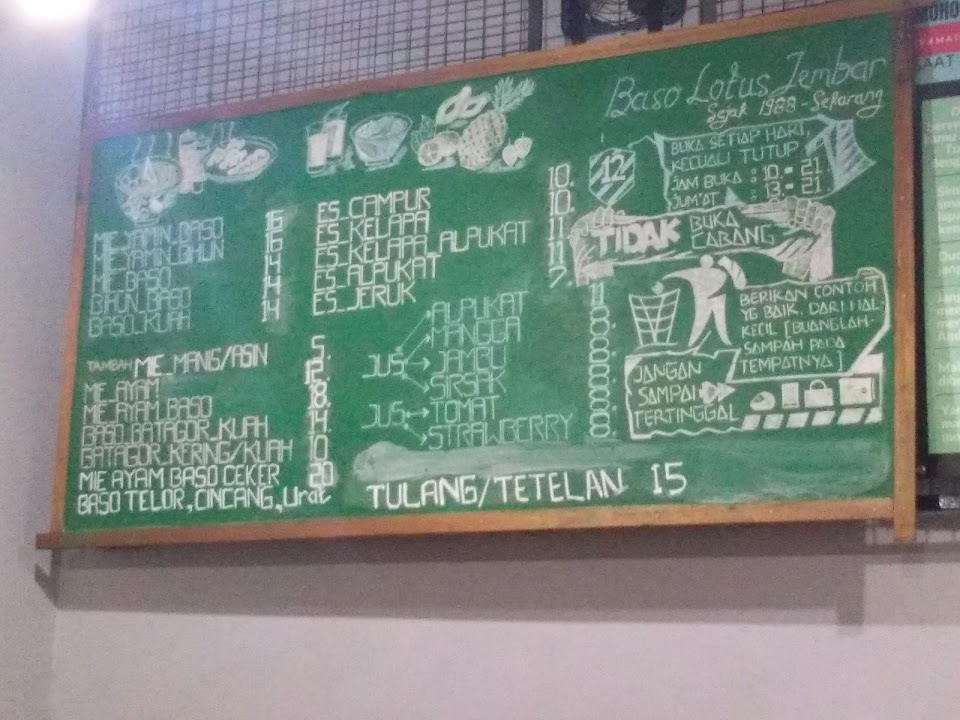 Baso Lotus Jembar
Sejak 1988 - Sekarang
MIE YAMIN BASO 16
MIE YAMIN BIHUN 16
MIE BASO 14
BIHUN BASO 14
BASO KUAH 14
TAMBAH MIE MANIS/ASIN 5.
MIE AYAM 12.
MIE AYAM BASO 18.
BASO BATAGOR KUAH 14.
BATAGOR KERING/KUAH 10
MIE AYAM BASO CEKER 20
BASO TELOR, CINCANG, Urat
ES CAMPUR 10.
ES KELAPA 10.
ES KELAPA ALPUKAT 11.
ES ALPUKAT 11.
ES JERUK 7.
JUS
ALPUKAT
MANGGA 8.
JAMBU 8.
SIRSAK 8.
JUS
TOMAT 8.
STRAWBERRY 8.
TULANG/TETELAN 15
12
BUKA SETIAP HARI,
KECUALI TUTUP
JAM BUKA : 10 - 21.
JUM'AT : 13 - 21.
TIDAK BUKA
CABANG
BERIKAN CONTOH
YG BAIK, DARI HAL
KECIL [BUANGLAH
SAMPAH PADA
TEMPATNYA]
JANGAN
SAMPAI
TERTINGGAL